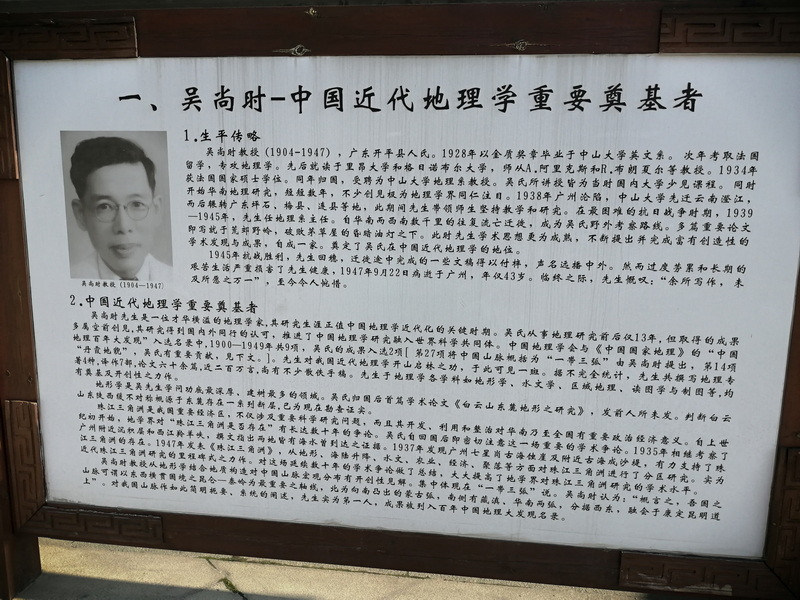 一、吴尚时-中国近代地理学重要奠基者
1.生平传略
吴尚时教授(1904-1947),广东开平县人氏。1928年以金质奖章毕业于中山大学英文系。次年考取法国
留学,专攻地理学。先后就读于里昂大学和格日诺布尔大学,师从A.阿里克斯和R.布朗夏尔等教授。1934年
获法国国家硕士学位。同年归国,受聘为中山大学地理系教授。吴氏所讲授皆为当时国内大学少见课程。同时
开始华南地理研究,短短数年,不少创见极为地理学界同仁注目。1938年广州沦陷,中山大学先迁云南澄江,
而后辗转广东坪石、梅县、连县等地,此期间先生带领师生坚持教学和研究。在最困难的抗日战争时期,1939
—1945年,先生任地理系主任。自华南而西南数千里的往复流亡迁徙,成为吴氏野外考察路线。多篇重要论文
即写就于荒郊野岭,破败茅草屋的昏暗油灯之下。此时先生学术思想更为成熟,不断提出并完成富有创造性的
学术发现与成果,自成一家。奠定了吴氏在中国近代地理学的地位。
1945年抗战胜利,先生回穗,迁徙途中完成的一些文稿得以付梓,声名远播中外。然而过度劳累和长期的
艰苦生活严重损害了先生健康,1947年9月22日病逝于广州,年仅43岁。临终之际,先生慨叹:“余所写作,未
及所意之万一”,至今令人惋惜。
吴尚时教授(1904—1947)
2.中国近代地理学重要奠基者
吴尚时先生是一位才华横溢的地理学家,其研究生涯正值中国地理学近代化的关键时期。吴氏从事地理研究前后仅13年,但取得的成果
多属空前创见,其研究得到国内外同行的认可,推进了中国地理学研究融入世界科学共同体。中国地理学会与《中国国家地理》的“中国
地理百年大发现”入选名录中,1900—1949年共9项,吴氏的成果入选2项[第27项将中国山脉概括为“一带三弧”由吴尚时提出,第14项
“丹霞地貌”,吴氏有重要贡献,见下文。]。先生对我国近代地理学开山启林之功,于此可见一斑。据不完全统计,先生共撰写地理专
著4种,译作7部,论文六十余篇,近二百万言,尚有不少散佚手稿。先生于地理各学科如地形学、水文学、区域地理、读图学与制图等,均
有奠基及开创性之力作。
地形学是吴先生学问功底最深厚,建树最多的领域。吴氏归国后首篇学术论文《白云山东麓地形之研究》,发前人所未发。判断白云
山东陡西缓不对称概源于东麓存在一系列断层,已为现在勘查证实。
珠江三角洲是我国重要经济区,不仅涉及重要科学研究问题,而且其开发、利用和整治对华南乃至全国有重要政治经济意义。自上世
纪初开始,地学界对“珠江三角洲是否存在”有长达数十年的争论。吴氏自回国后即密切注意这一场重要的学术争论。1935年相继考察了
广州附近沉积层和西江羚羊峡,撰文指出两地皆有海水曾到达之证据。1937年发现广州七星岗古海蚀崖及附近古海成沙堤,有力支持了珠
江三角洲的存在。1947年发表《珠江三角洲》,从地形、海陆升降、水文、农业、经济、聚落等方面对珠江三角洲进行了分区研究。实为
近代珠江三角洲研究的里程碑式之力作。对这场延续数十年的学术争论做了总结,大大提高了地学界对珠江三角洲研究的学术水平。
吴尚时教授从地形学结合地质构造对中国山脉宏观分布有开创性见解。集中体现在“一带三弧”说。吴尚时认为:“概言之,吾国之
山脉可谓以东西横贯国境之昆仑—秦岭为最重要之轴线,北为向南凸出的蒙古弧,南侧有藏滇、华南两弧,分据西东,融会于康定昆明道
上”。对我国山脉作如此简明扼要、系统的阐述,先生实为第一人,成果被列入百年中国地理大发现名录。